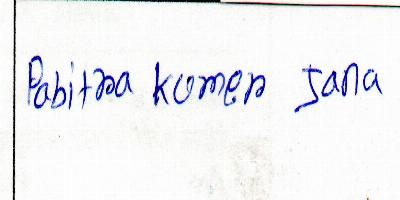 Pabitra kumer Jana